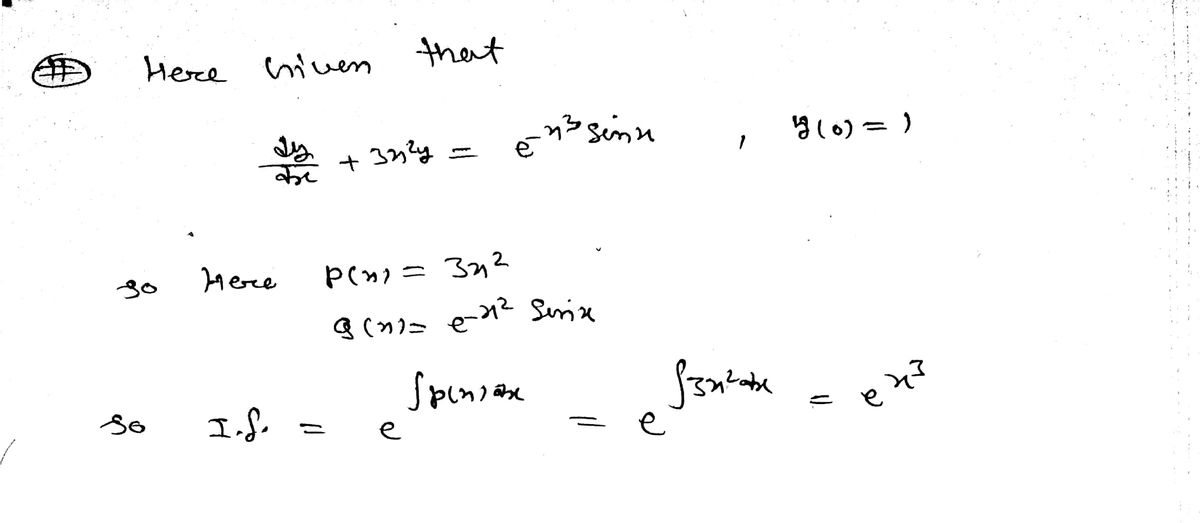 # Here Given that
dy/dx + 3x²y = e^-x³ sinx , y(0) = 1
so Here p(x) = 3x²
Q(x) = e^-x² Sinx
so I.f. = e^∫p(x)dx = e^∫3x²dx = e^x³